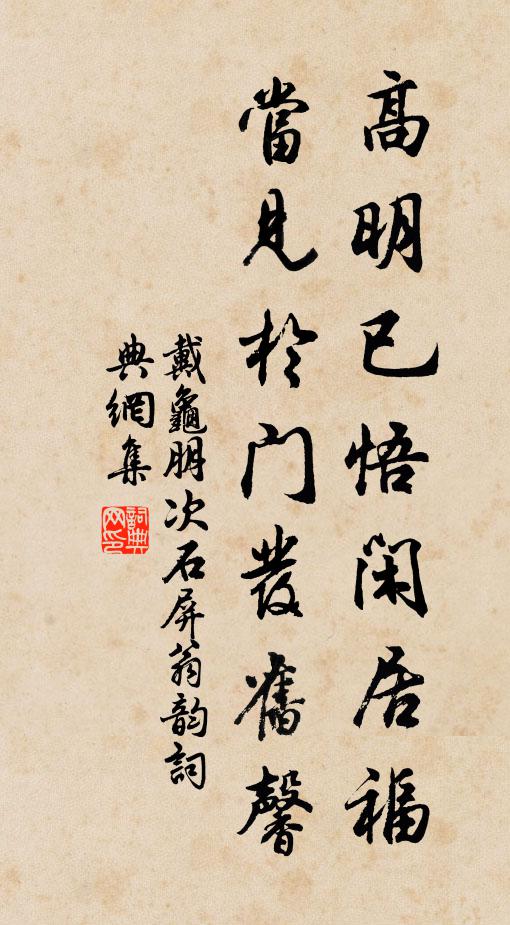 高明已悟閑居福
當見於门發舊馨
戴龜朋次石屏翁韵詞
典網集
詞典網印